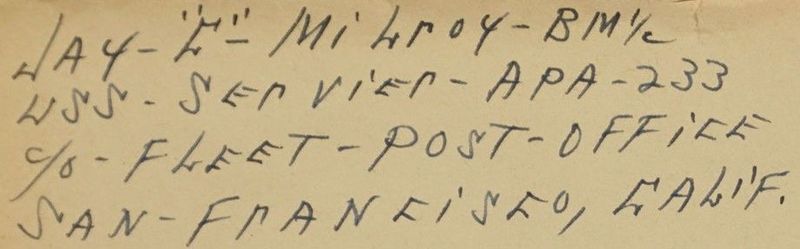 JAY-"C"- MiLrOY-BM1/c
USS-SErViEr-APA-233
c/o-FLEET-POST-OFFiCE
SAN-FrANCiSCO, CALiF.